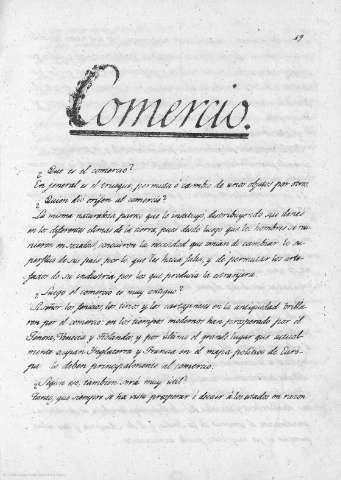 19
Comercio.
¿Que es el comercio?
En jeneral es el trueque, permuta ó cambio de unos objetos por otros.
¿Quien dió orijen al comercio?
La misma naturaleza parece que lo instituyó, distribuyendo sus dones
en los diferentes climas de la tierra, pues desde luego que los hombres se reu-
nieron en sociedad, conocieron la necesidad que tenian de cambiar lo su-
perfluo de su pais por lo que les hacia falta, y de permutar los arte-
factos de su industria por los que producia la estranjera.
¿Luego el comercio es muy antiguo?
Si señor: los fenicios, los tirios y los cartajineses en la antigüedad brilla-
ron por el comercio: en los tiempos modernos han prosperado por él
Jenova, Venecia y Holanda; y por último el grande lugar que actual-
mente ocupan Inglaterra y Francia en el mapa politico de Euro-
pa lo deben principalmente al comercio.
¿Segun eso, tambien será muy util?
Tanto, que siempre se ha visto prosperar ó decaer á los estados en razon